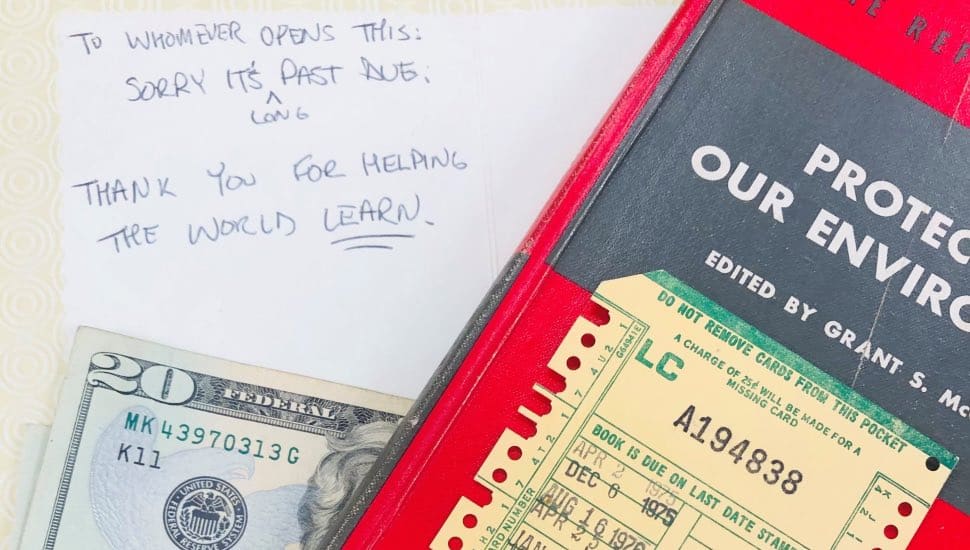 TO WHOMEVER OPENS THIS:
SORRY IT'S PAST DUE.
^
LONG
THANK YOU FOR HELPING
THE WORLD LEARN.
20 FEDERAL
MK 43970313 G
K11
UNITED STATES
FEDERAL RESERVE SYSTEM
THE REF
PROTEC
OUR ENVIRO
EDITED BY GRANT S. Mc
DO NOT REMOVE CARDS FROM THIS POCKET
A CHARGE OF 25¢ WILL BE MADE FOR A
MISSING CARD
LC
A194838
BOOK IS DUE ON LAST DATE STAM
APR 2 1975
DEC 6 1975
AUG 16 1976
APR 2
JAN